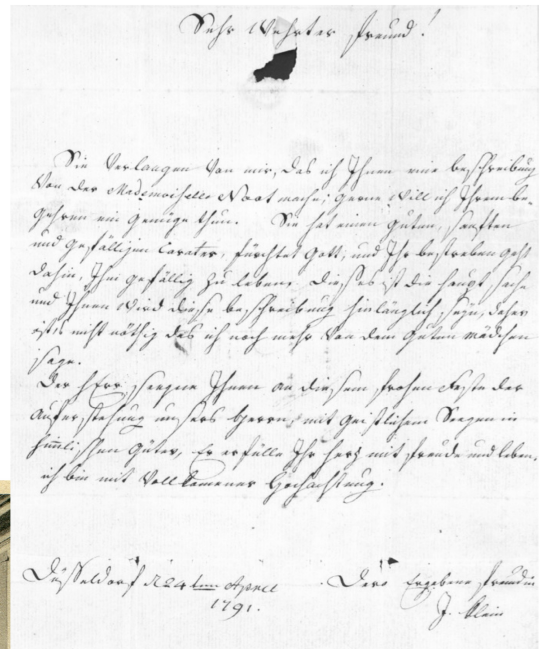 Sehr Wehrter freund!
Sie Verlangen Von mir, das ich Ihnen eine beschreibung
Von der Mademoiselle Noot mache; gerne Will ich Ihrem be-
gehren ein genüge thun. Sie hat einen guten, sanften
und gefälligen Caracter, fürchtet Gott, und Ihr bestreben geht
dahin, Ihm gefällig zu leben. Dieses ist die haupt sache
und Ihnen Wird diese beschreibung hinlänglich seyn, daher
ist es nicht nöthig das ich noch mehr Von dem guten mädchen
sage.
Der Herr seegne Ihnen an diesem frohen Feste der
Auferstehung unsers Herrn, mit geistlichem Seegen in
himlischen Güter, Er erfülle Ihr herz mit freude und leben,
ich bin mit Vollkomener Hochachtung.
Düsseldorf d 24ten Aprill
1791.
Dero Ergebene freundin
J. Klein